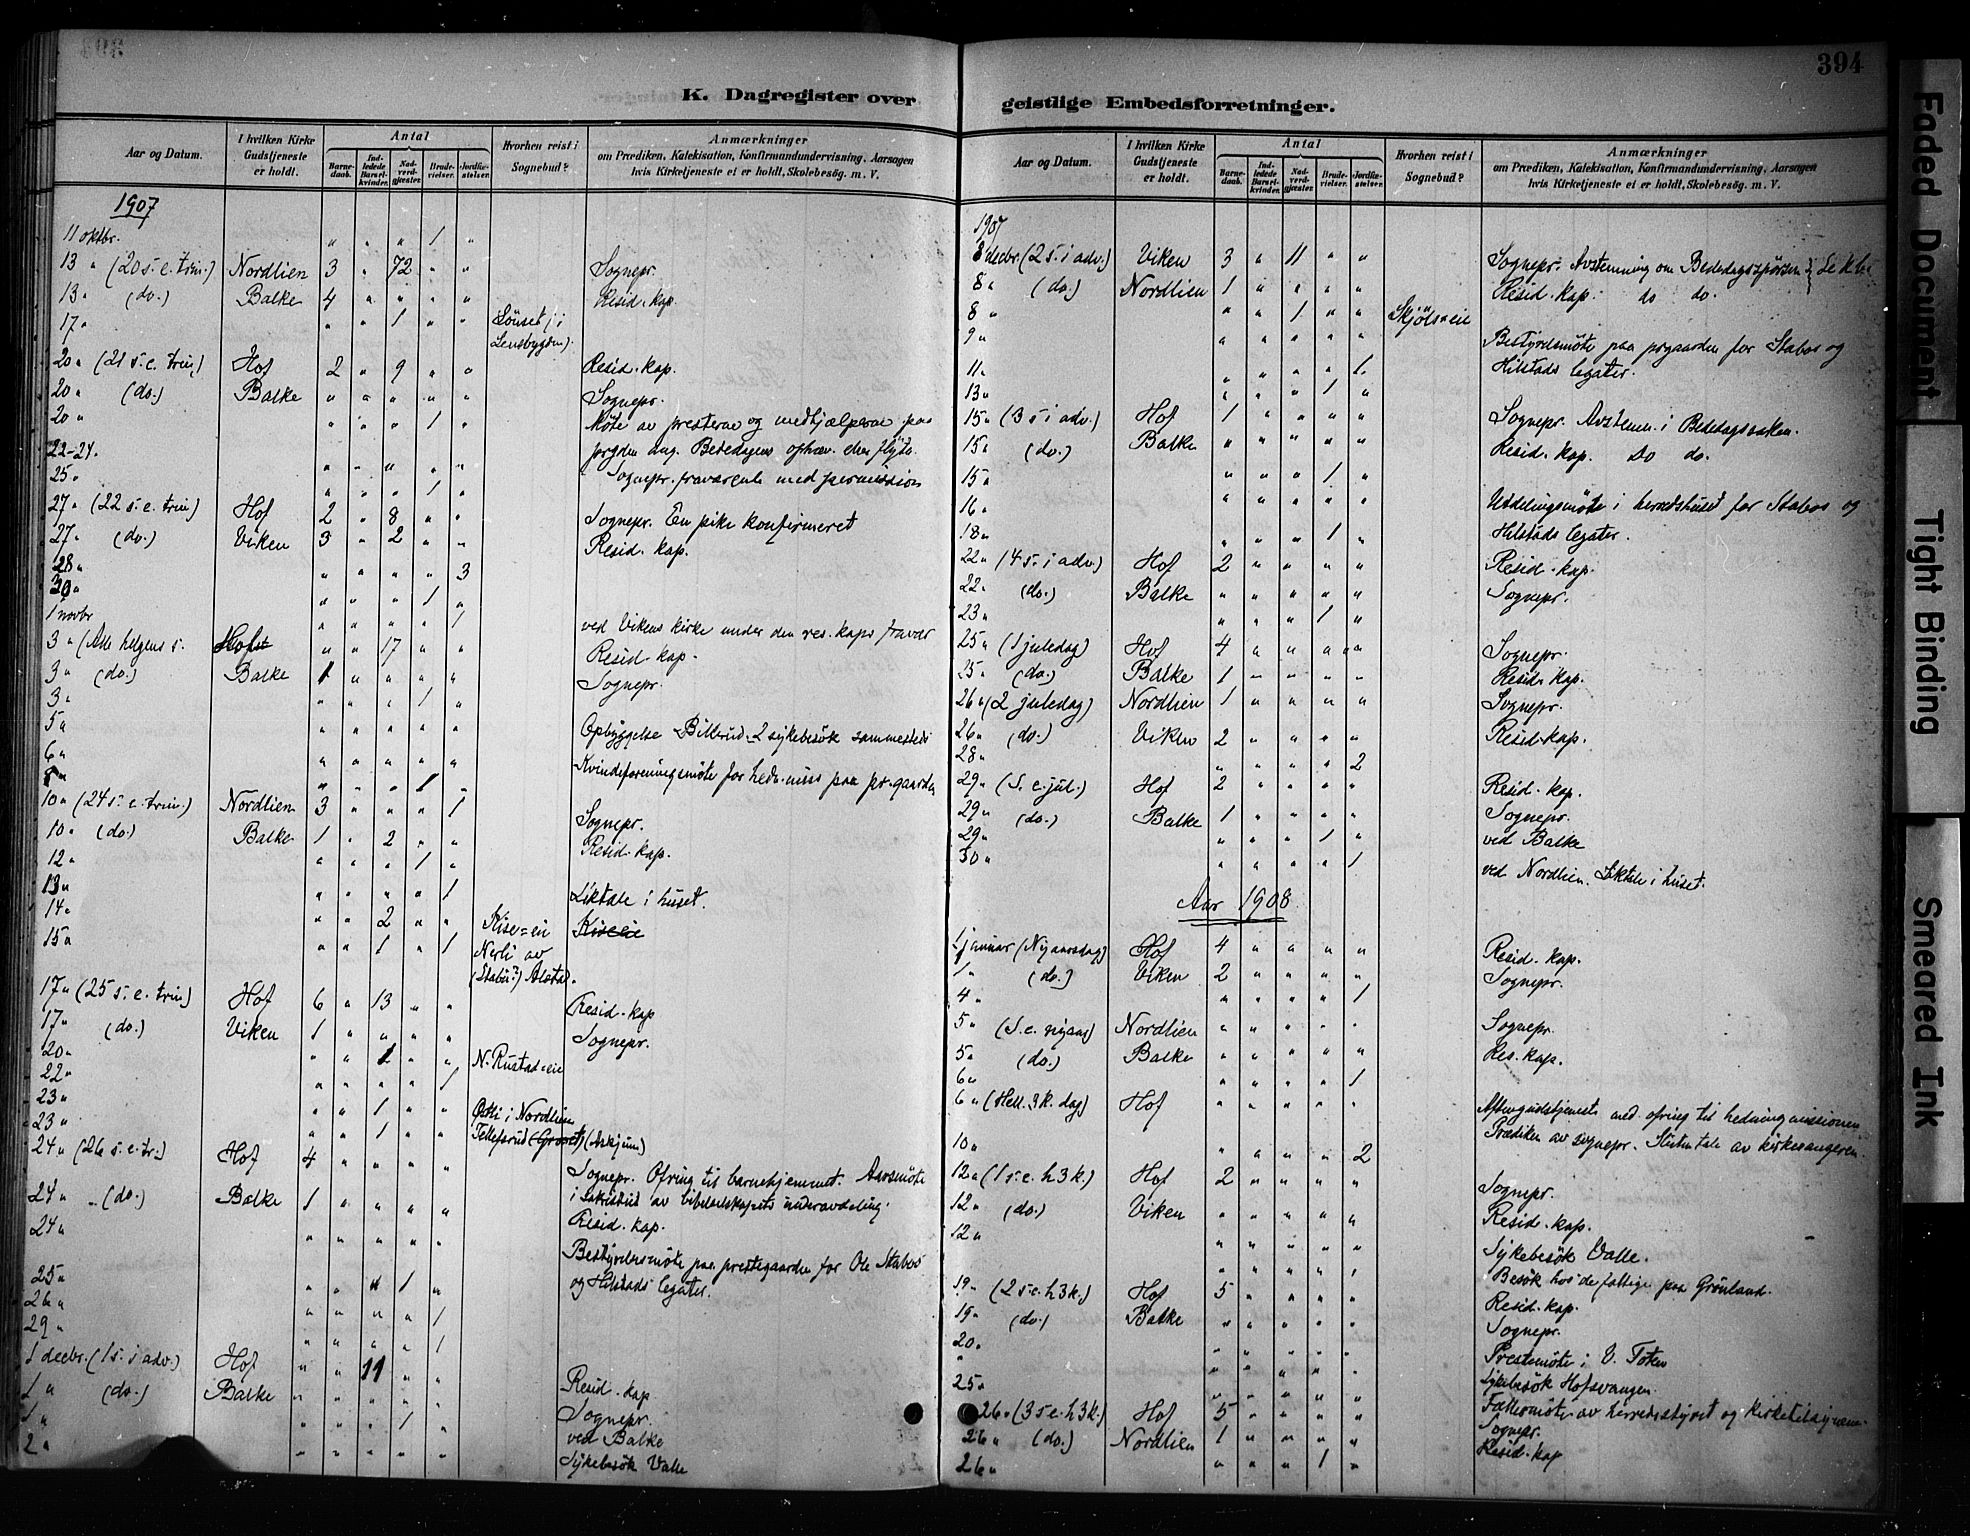 394
K. Dagregister over
geistlige Embedsforretninger.
Aar og Datum. I hvilken Kirke Gudstjeneste er holdt. Antal Barnedaab. Indledede Barselkvinder. Nadverdgjester. Brudevielser. Jordfæstelser. Hvorhen reist i Sognebud? Anmærkninger om Prædiken, Katekisation, Konfirmandundervisning, Aarsagen hvis Kirketjeneste ei er holdt, Skolebesøg. m. V.
1907
11 oktbr. " " " 1 "
13 " (20 s. e. trin.) Nordlien 3 " 72 " " Sognepr.
13 " (do.) Balke 4 " " " " Resid. kap.
17 " " " 1 " " Lönset (i
Lensbygden).
20 " (21 s. e. trin.) Hof 2 " 9 " " Resid. kap.
20 " (do.) Balke " " " " " Sognepr.
20 " " " " 1 " Möte av presterne og medhjælperne paa
22-24. " " " " " prgden ang. Bededagens ophæv. eller flytn.
25 " " " " 1 " Sognepr. fraværende med permission
27 " (22 s. e. trin) Hof 2 " 8 " " Sognepr. En pike konfirmeret
27 " (do.) Viken 3 " 2 " " Resid. kap.
28 " " " " " 3
30 " " " " 1 "
1 novbr " " " " 1 ved Vikens kirke under den res. kaps fravær
3 " (Alle helgens s. Hof " " 17 " " Resid. kap.
3 " (do.) Balke 1 " " " " Sognepr.
3 " " " " 1 "
5 " " " " " " Opbyggelse Billerud. 2 sykebesök sammesteds
6 " " " " " " Kvindeforeningsmöte for hedn. miss paa pr. gaarden
8 " " " " 1 "
10 " (24 s. e. trin.) Nordlien 3 " " " 1 Sognepr.
10 " (do.) Balke 1 " 2 " " Resid. kap.
12 " " " " 1 "
13 " " " " " 1 Liktale i huset.
14 " " " 2 " " Kise=eie Kiseeie
15 " " " 1 " 1 Nerli av
(Stabo?) Alstad.
17 " (25 s. e. trin) Hof 6 " 13 " " Resid. kap
17 " (do.) Viken 1 " " " " Sognepr.
20 " " " 1 " " N. Rustad=eie
22 " " " " " 1
23 " " " 1 " " Østli i Nordlien
23 " " " 1 " " Tellefsrud (Askjum)
24 " (26 s. e. tr.) Hof 4 " " " " Sognepr. Ofring til barnehjemmet. Aarsmöte
i sakristiet av bibelselskapets underavdeling.
24 " (do.) Balke 1 " " " " Resid. kap.
24 " " " " " " Bestyrelsesmöte paa prestegaarden for Ole Stabos
25 " " " " 1 " og Hilstads legater.
26 " " " " " 1
29 " " " " " 1
1 decbr. (1 s. i adv.) Hof " " 11 " " Resid. kap
1 " (do.) Balke " " " " " Sognepr.
1 " " " " 1 " ved Balke
2 " " " " " " Sykebesök Valle
Aar og Datum. I hvilken Kirke Gudstjeneste er holdt. Antal Barnedaab. Indledede Barselkvinder. Nadverdgjester. Brudevielser. Jordfæstelser. Hvorhen reist i Sognebud? Anmærkninger om Prædiken, Katekisation, Konfirmandundervisning, Aarsagen hvis Kirketjeneste ei er holdt, Skolebesøg. m. V.
1907
8 decbr. (2 s. i adv.) Viken 3 " 11 " " Sognepr. Avstemning om Bededagsspörsm
8 " (do.) Nordlien 1 " " " " Resid. kap. do do.
8 " " " 1 " " Skjöls=eie
9 " " " " " " Bestyrelsesmöte paa prgaarden for Stabos og
11 " " " " " 1 Hilstads legater.
13 " " " " 1 "
15 " (3 s i adv.) Hof 1 " " " " Sognepr. Avstemn. i Bededagssaken.
15 " (do.) Balke " " " " " Resid. kap. do do.
15 " " " " 1 "
16 " " " " " " Uddelingsmöte i herredshuset for Stabos og
18 " " " " 1 " Hilstads legater.
22 " (4 s. i adv.) Hof 2 " " " " Resid. kap.
22 " (do.) Balke " " " " " Sognepr.
23 " " " " 1 "
25 " (1 juledag) Hof 4 " " " " Sognepr.
25 " (do.) Balke 1 " " " " Resid. kap.
26 " (2 juledag) Nordlien 1 " " " " Sognepr.
26 " (do.) Viken 2 " " " " Resid. kap.
28 " " " " " 2
29 " (S. e. jul.) Hof 2 " " " " Resid. kap.
29 " (do.) Balke 1 " " " " Sognepr.
29 " " " " 1 " ved Balke
30 " " " " " 1 ved Nordlien. Liktale i huset.
Aar 1908
1 januar (Nyaarsdag) Hof 4 " " " " Resid. kap.
1 " (do.) Viken 2 " " " " Sognepr.
4 " " " " " 1
5 " (S. e. nyaar) Nordlien " " " " " Sognepr.
5 " (do.) Balke " " " " " Res. kap.
6 " " " " " 1
6 " (Hell. 3 k. dag) Hof " " " " " Aftengudstjeneste med ofring til hedningmissionen
Prædiken av sognepr. Slutn. tale av kirkesangeren.
10 " " " " " 2
12 " (1 s. e. h 3 k.) Hof 2 " " " " Sognepr.
12 " (do.) Viken " " " " " Resid. kap.
12 " " " " " " Sykebesök Valle.
" " " " " Besök hos de fattige paa Grönland.
19 " (2 s e. h 3 k.) Hof 5 " " " " Resid. kap.
19 " (do) Balke " " " " " Sognepr.
20 " " " " " " Prestemöte i V. Toten
" " " " " " Sykebesök Hofsvangen.
25 " " " " " " Fællesmöte av herredsstyret og kirketilsynene
26 " (3 s e. h 3 k.) Hof 5 " " " " Sognepr.
26 " (do.) Nordlien 1 " " " " Resid. kap
26 " " " " 1 "
Faded Document
Tight Binding
Smeared Ink